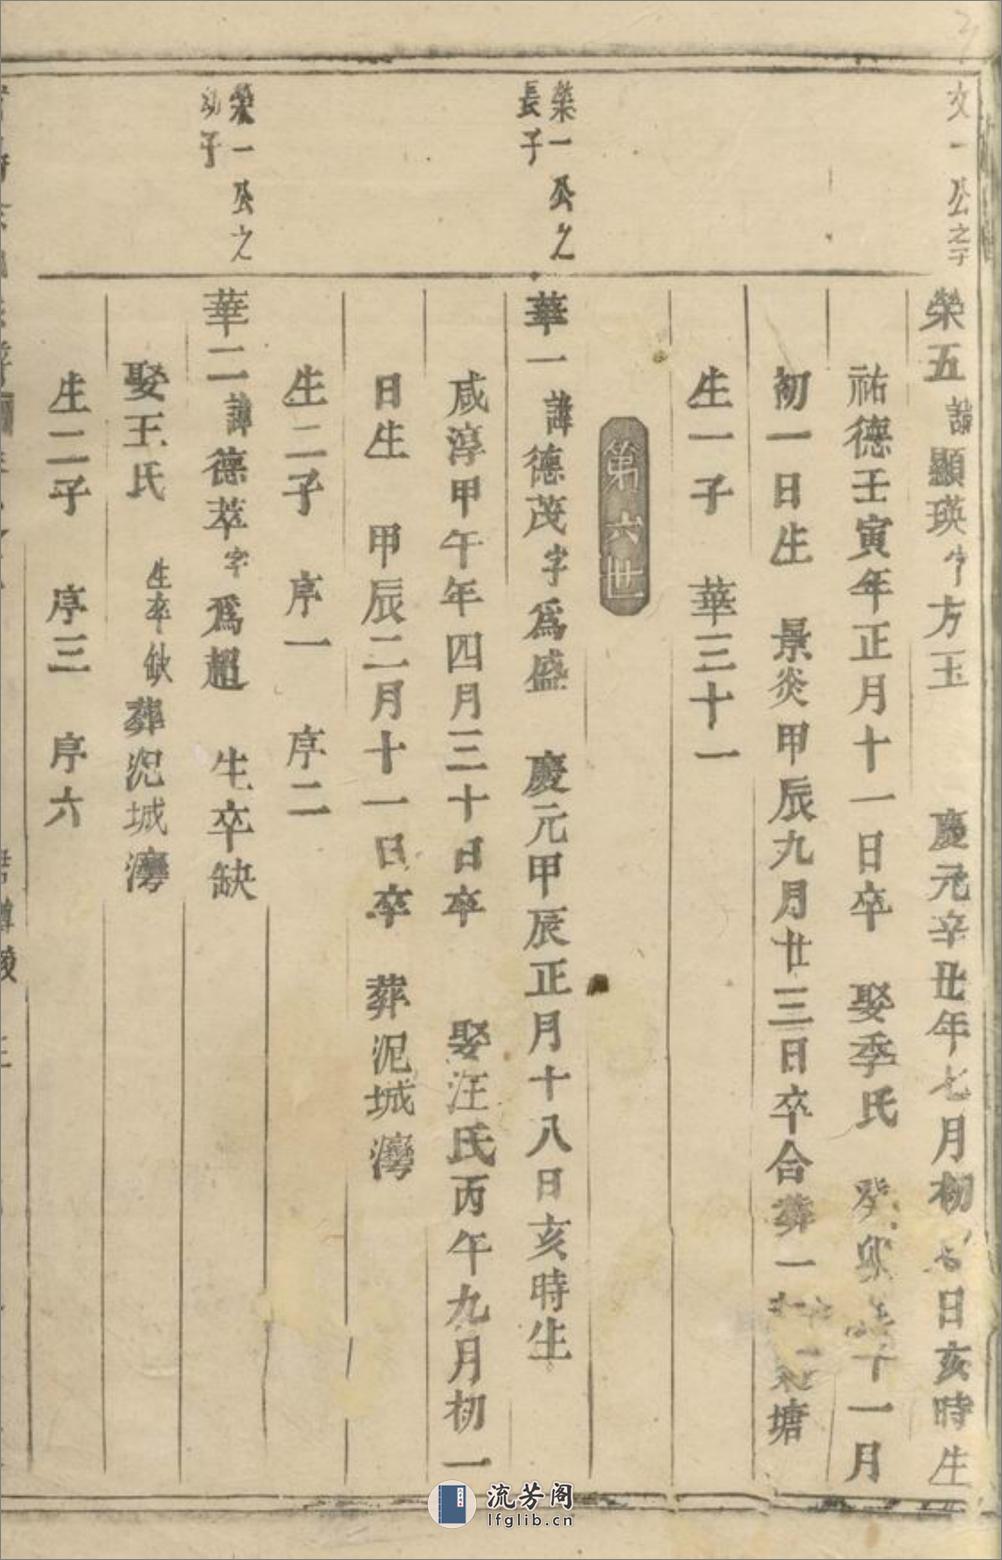 文一公之子
榮五諱顯瑛字方玉 慶元辛丑年七月初 日亥時生
祐德壬寅年正月十一日卒 娶季氏 癸卯年十一月
初一日生 景炎甲辰九月廿三日卒合葬一 塘
生一子 華三十一
第六世
榮一公之
長子
華一諱德茂字爲盛 慶元甲辰正月十八日亥時生
咸淳甲午年四月三十日卒 娶汪氏丙午九月初一
日生 甲辰二月十一日卒 葬泥城灣
生二子 序一 序二
榮一公之
幼子
華二諱德萃字爲超 生卒缺
娶王氏 生卒缺 葬泥城灣
生二子 序三 序六
流芳阁
lfglib.cn